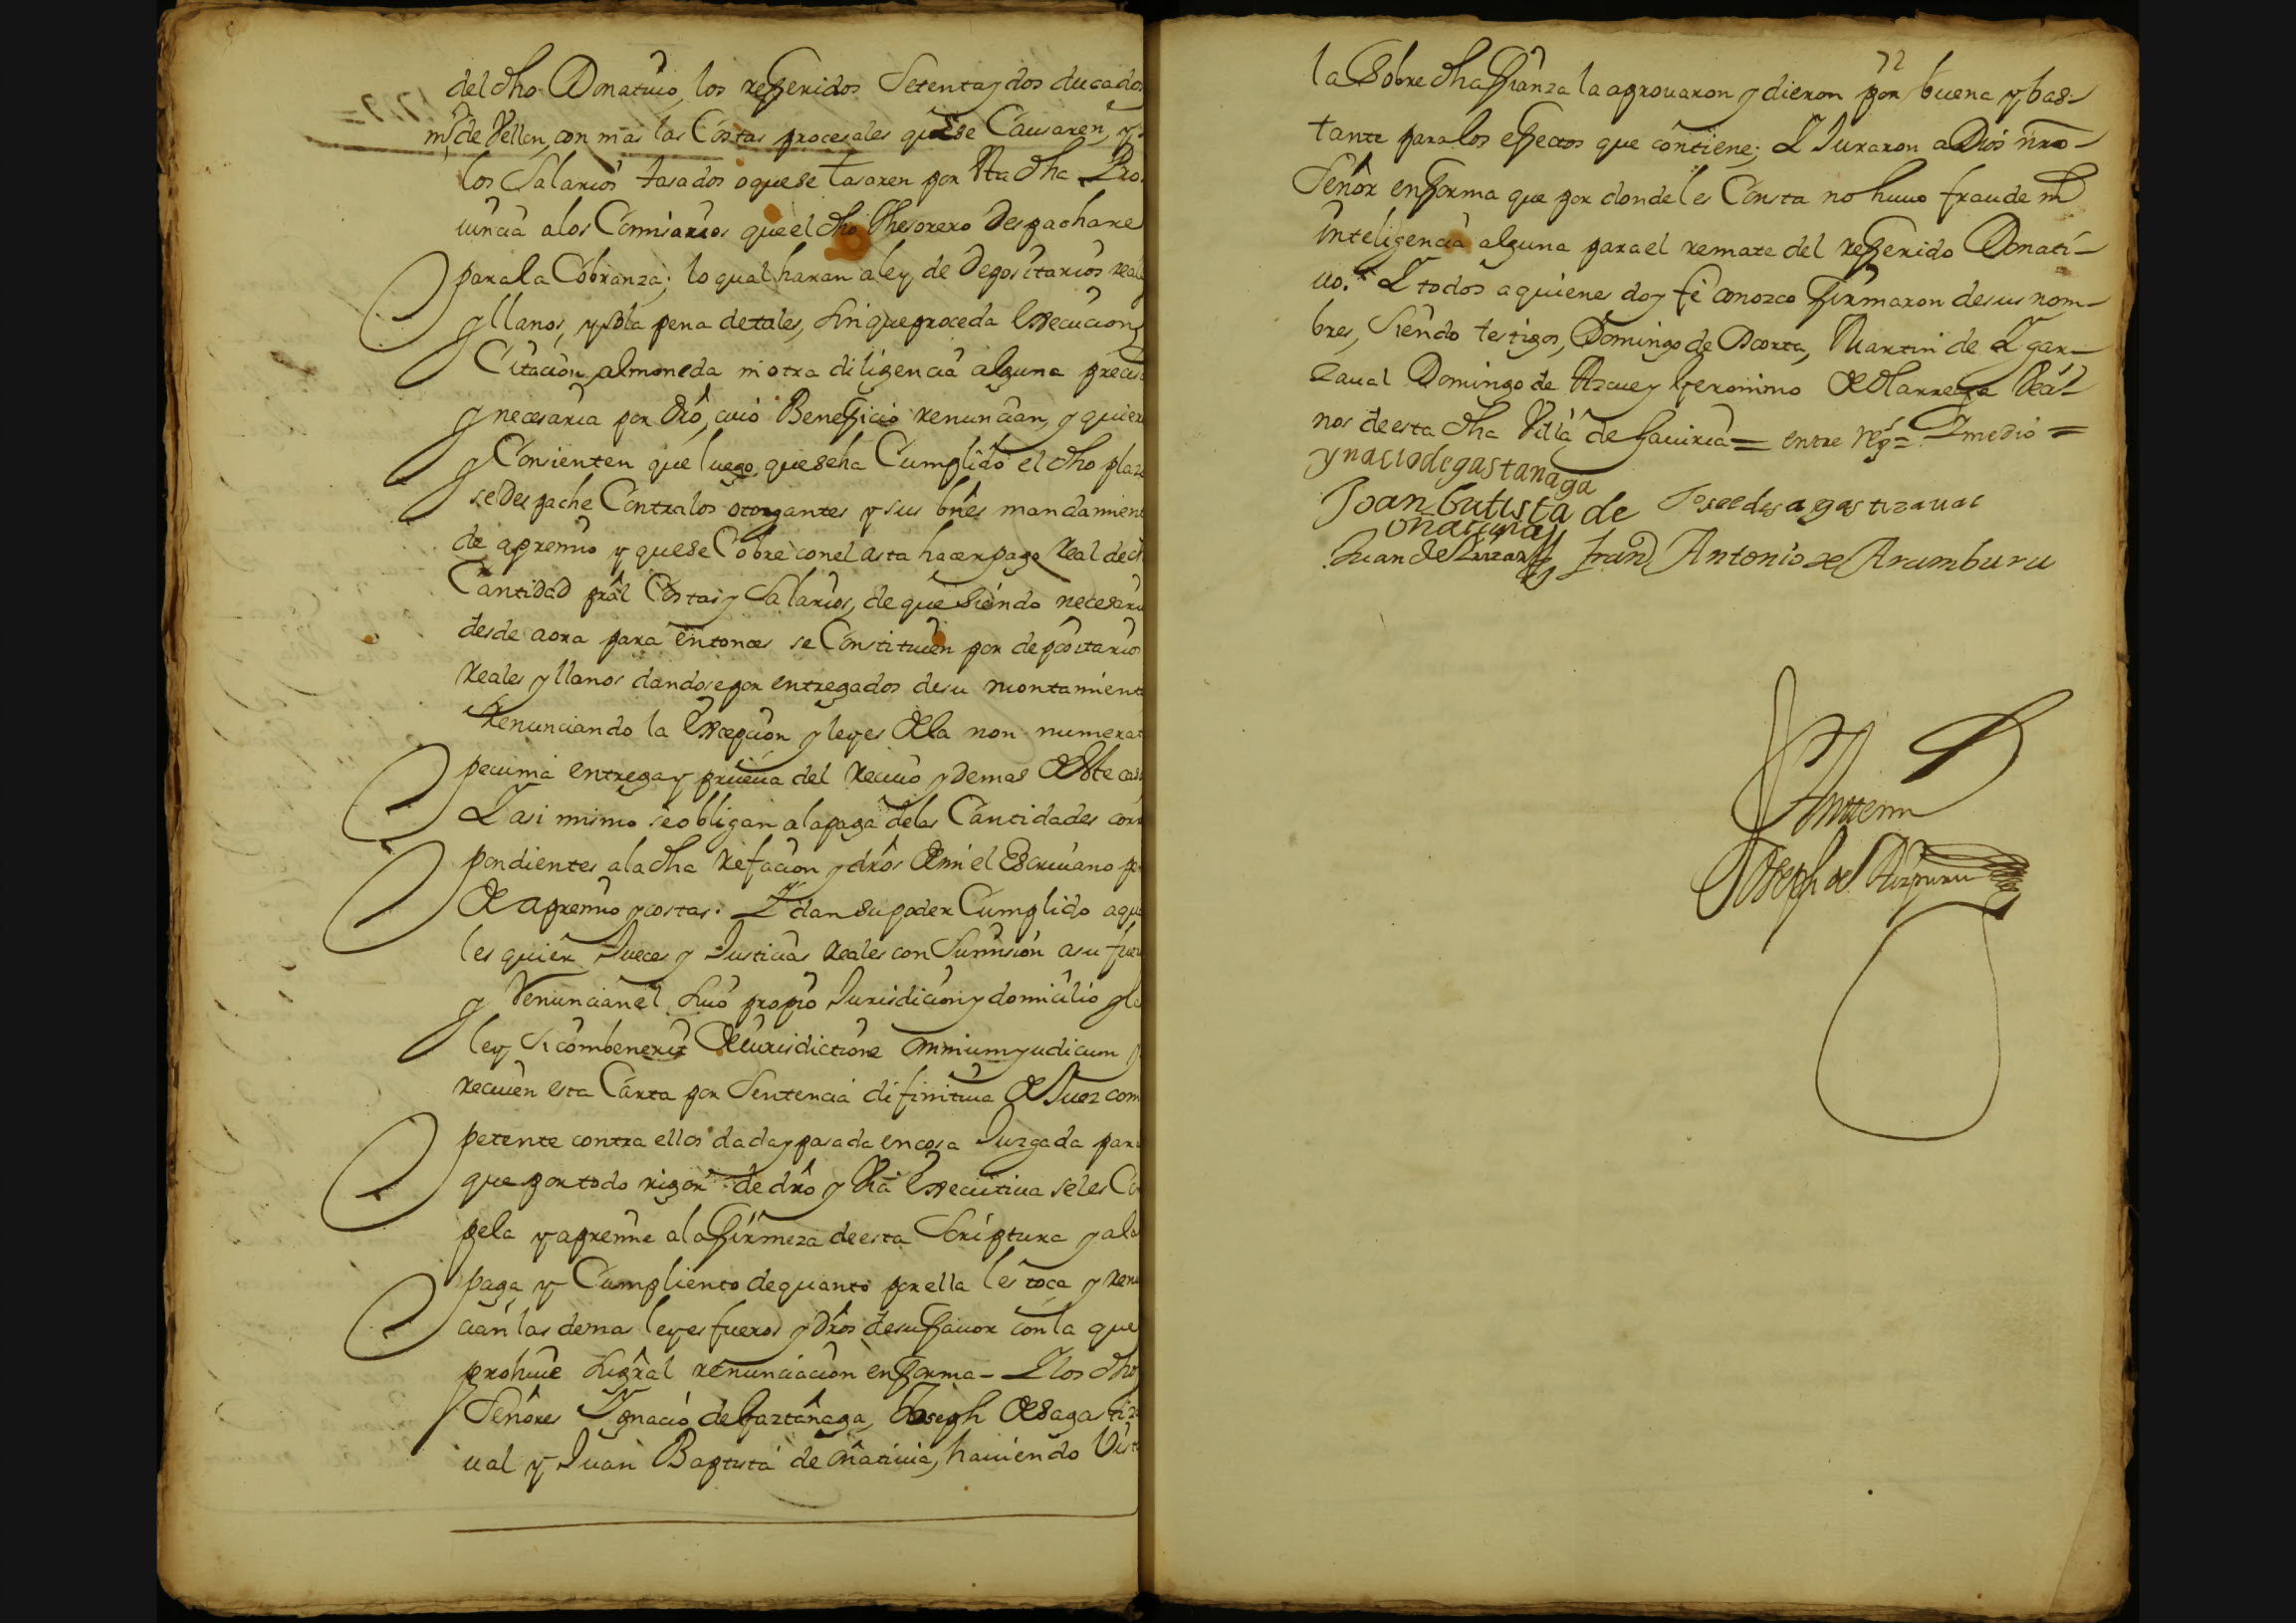 del dho Donatiuo, los refferidos Setenta y dos ducados
ms. de Vellon, con mas las Costas procesales que se Causaren, y
los Salarios tasados o que se tasaren por Sta dha Pro
uincia a los Comisarios que el dho Thesorero Despachare
para la Cobranza; lo qual haran a ley de Depositarios real
y llanos, y sola pena de tales, sin que proceda Execucion
Citacion almoneda ni otra diligencia alguna precis
y necesaria por dro, cuio Beneficio renuncian, y quier
y Consienten que luego que seha Cumplido el dho plaz
se Despache Contra los otorgantes y sus bnes mandamient
de apremio y que se Cobre con el asta hacer pago Real de
Cantidad pral Costas y Salarios, de que siendo necesari
desde aora para entonces se Constituien por depositarios
Reales y llanos dandose por entregados de su montamient
Renunciando la Excepcion y leyes de la non numerat
pecunia entrega y prueua del Reciuo y demas de este cas
Y asi mismo se obligan a la paga de las Cantidades corr
pondientes a la dha Refacion y dros de mi el Escriuano p
de apremio y costas: Y dan su poder Cumplido a qu
les quier Jueces y Justicias Reales con Sumision a su fue
y Renuncian el suio propio Jurisdicion y domicilio y la
ley si combenerit de iurisdictione omnium yudicum y
reciuen esta Carta por Sentencia difinitiua de Juez com
petente contra ellos dada y pasada en cosa Juzgada par
que por todo rigor de dro y Via Executiua se les Co
pela y apremie a la firmeza de esta Scriptura y a la
paga y Cumpliento de quanto por ella les toca y ren
cian las demas leyes fueros y dros de su fauor con la que
prohiue la gral renunciacion en forma - Y los dho
Señores Ygnacio de Gaztañaga, Joseph de Sagastiz
ual y Juan Baptista de Oñatiuia, hauiendo Vist
72
la Sobre dha fianza la aprouaron y dieron por buena y bas-
tante para los effectos que contiene; Y Juraron a Dios nro
Señor en forma que por donde les Consta no huuo fraude ni
Inteligencia alguna para el remate del refferido Donati-
uo. Y todos a quienes doy fe conozco firmaron de sus nom-
bres, Siendo testigos, Domingo de Acorta, Martin de Ygar-
zaual Domingo de Azcue y Geronimo de Olarreaga Veci-
nos de esta dha Villa de Gauiria = entre Rs = Y medio =
ynacio de gastanaga
Joan butista de Josee de sagastizaual
onatiuia
Juan de Fran Antonio de Aramburu
Ante mi
Joseph de Aizpuru